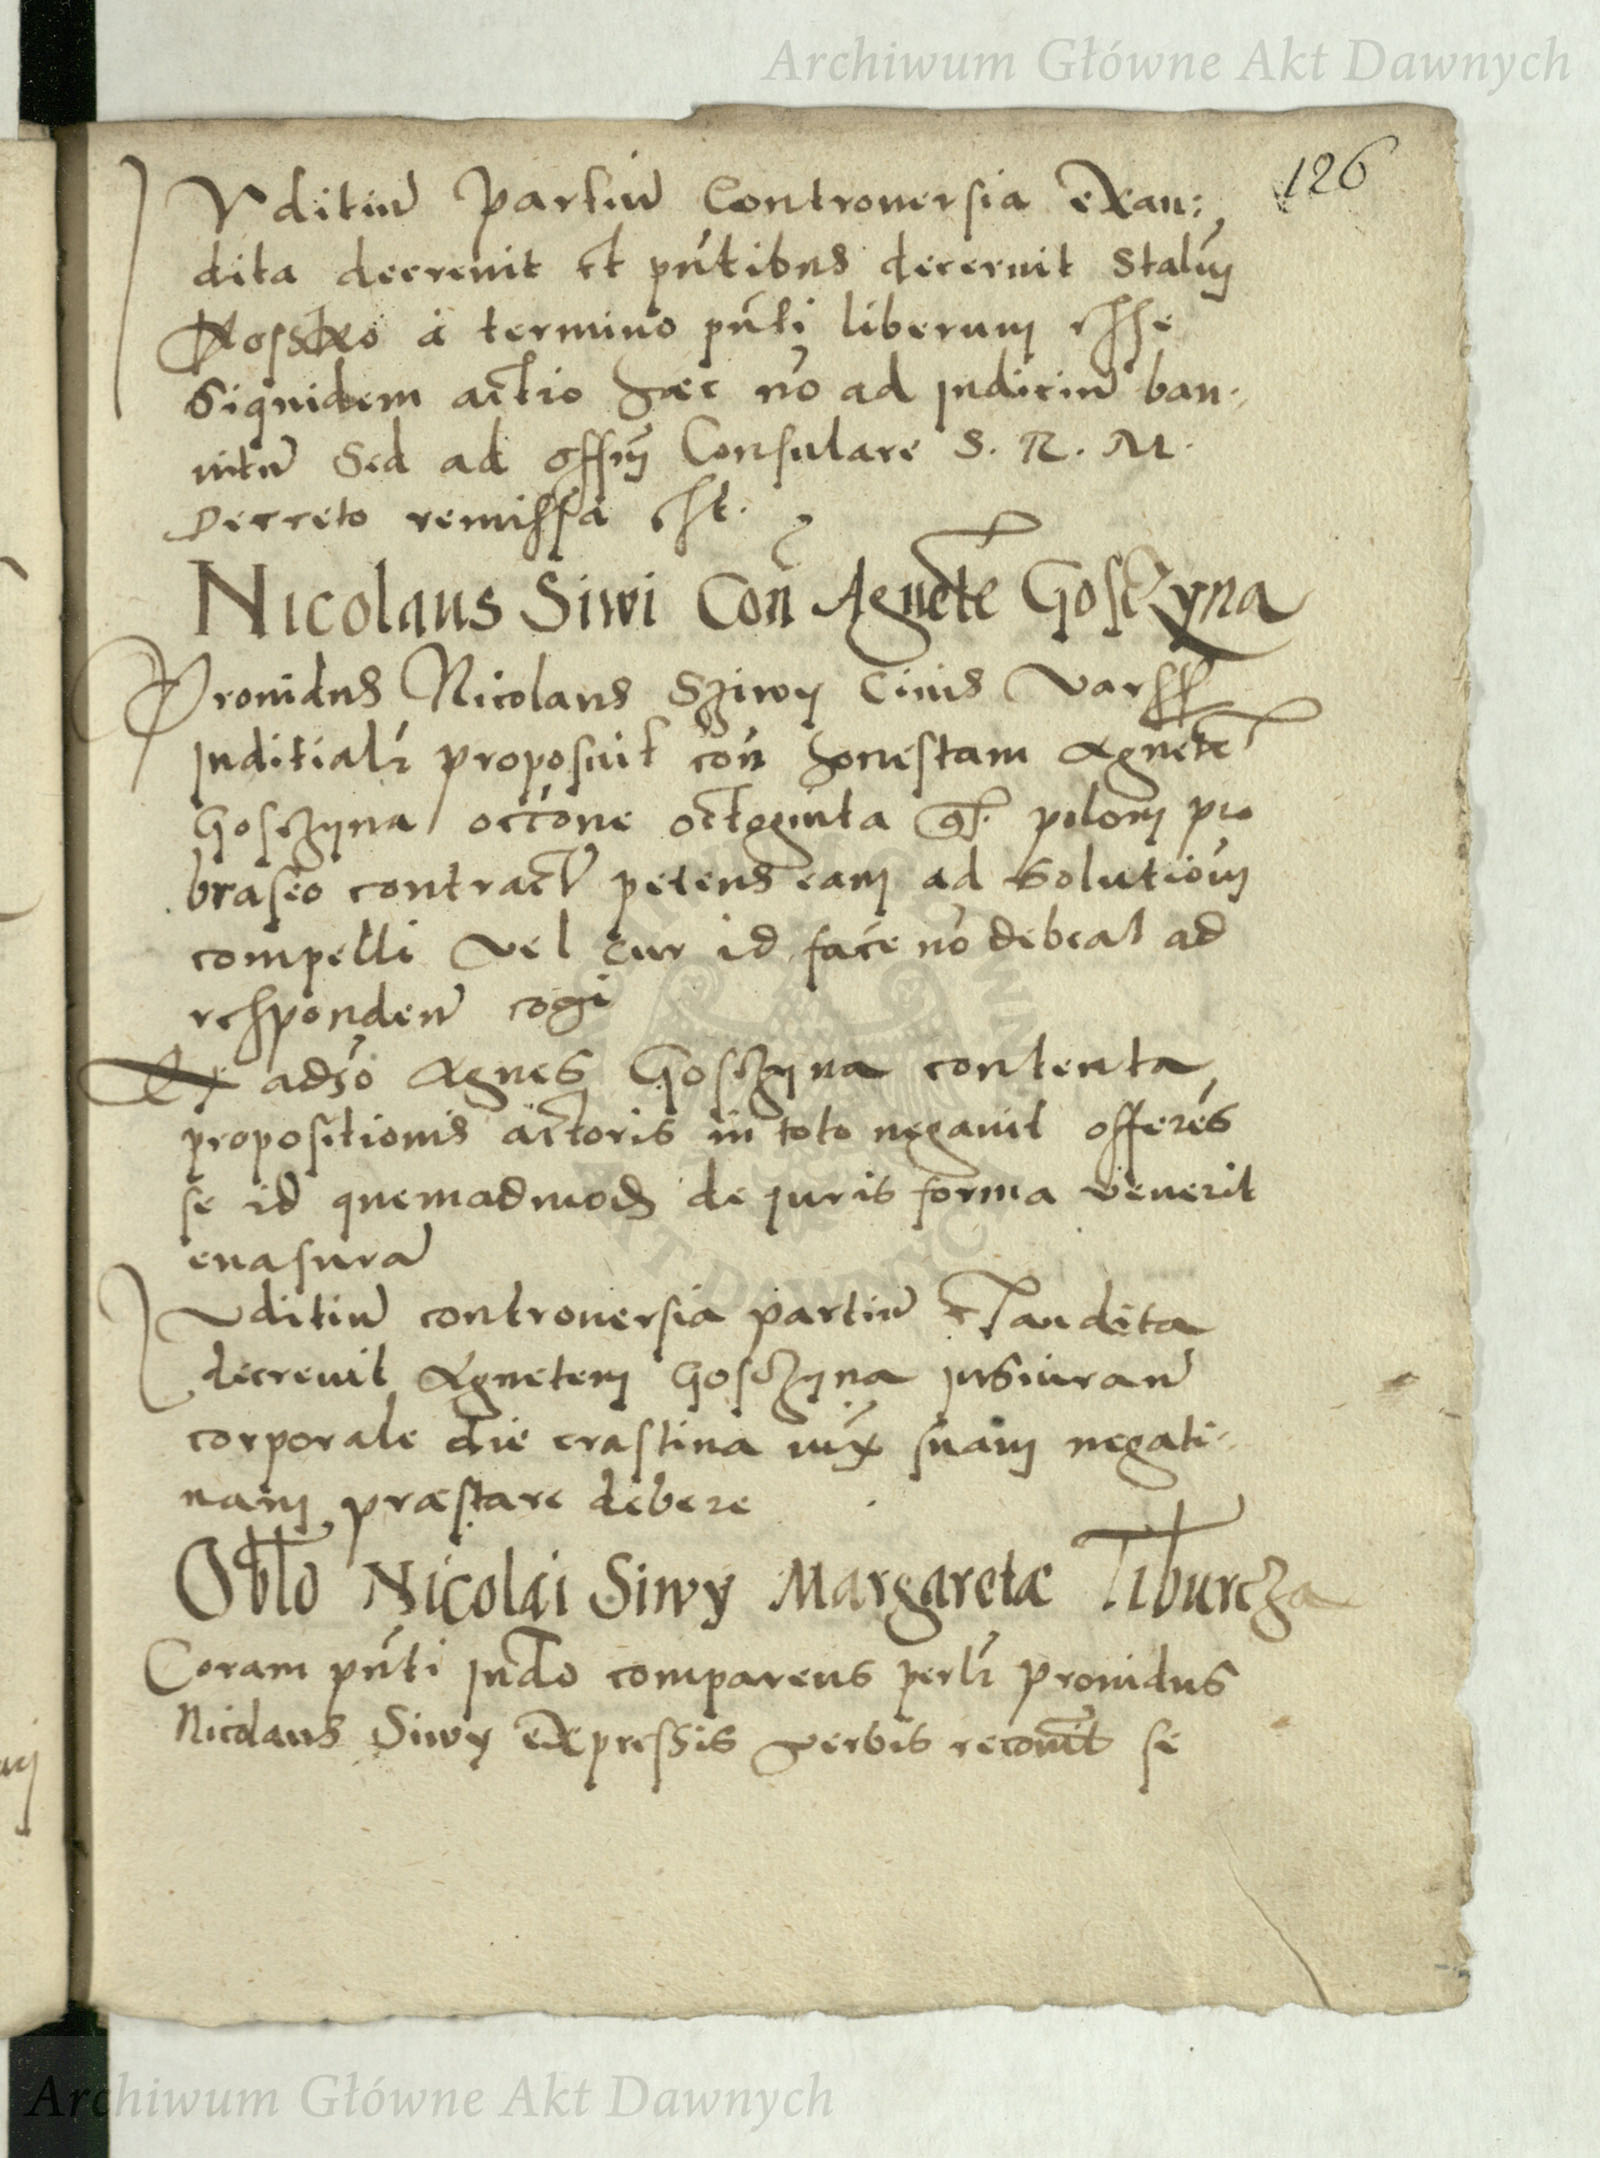 Archiwum Główne Akt Dawnych
126
Juditiu᷑ partiu᷑ Controuersia exau:
dita decreuit et pn̄tibus decernit Stalū
Kossko à termino pn̄ti liberum esse
Siquidem actio haec nō ad Juditiu᷑ ban:
nitu᷑ Sed ad offm̄ Consulare S. R. M.
Decreto remissa est.
Nicolaus Siwi Con̄ Agnetē Gosczyna
Prouidus Nicolaus Sziwy Ciuis Varss
Juditialr̄ proposuit con̄ honestam Agnetē
Gosczyna occōne octoginta gr. pecom pro
braseo contract petens eam ad Solutiōm
compelli Vel cur id facē nō debeat ad
responden᷑ cogi
Ex adsō Agnes Gosczyna contenta
propositionis actoris in toto negauit offerēs
se id quemadmod de juris forma venerit
euasura᷑
Juditiu᷑ controuersia partiu᷑ exaudita
decreuit Agnetem Gosczyna jusiuran᷑
corporale die crastina iux̄ suam negati:
uam praestare debere
Obltō Nicolai Siwy Margaretae Tiburcza
Coram pn̄ti Judō comparens perlr̄ prouidus
Nicolaus Siwy expressis verbis recouit se
Archiwum Główne Akt Dawnych